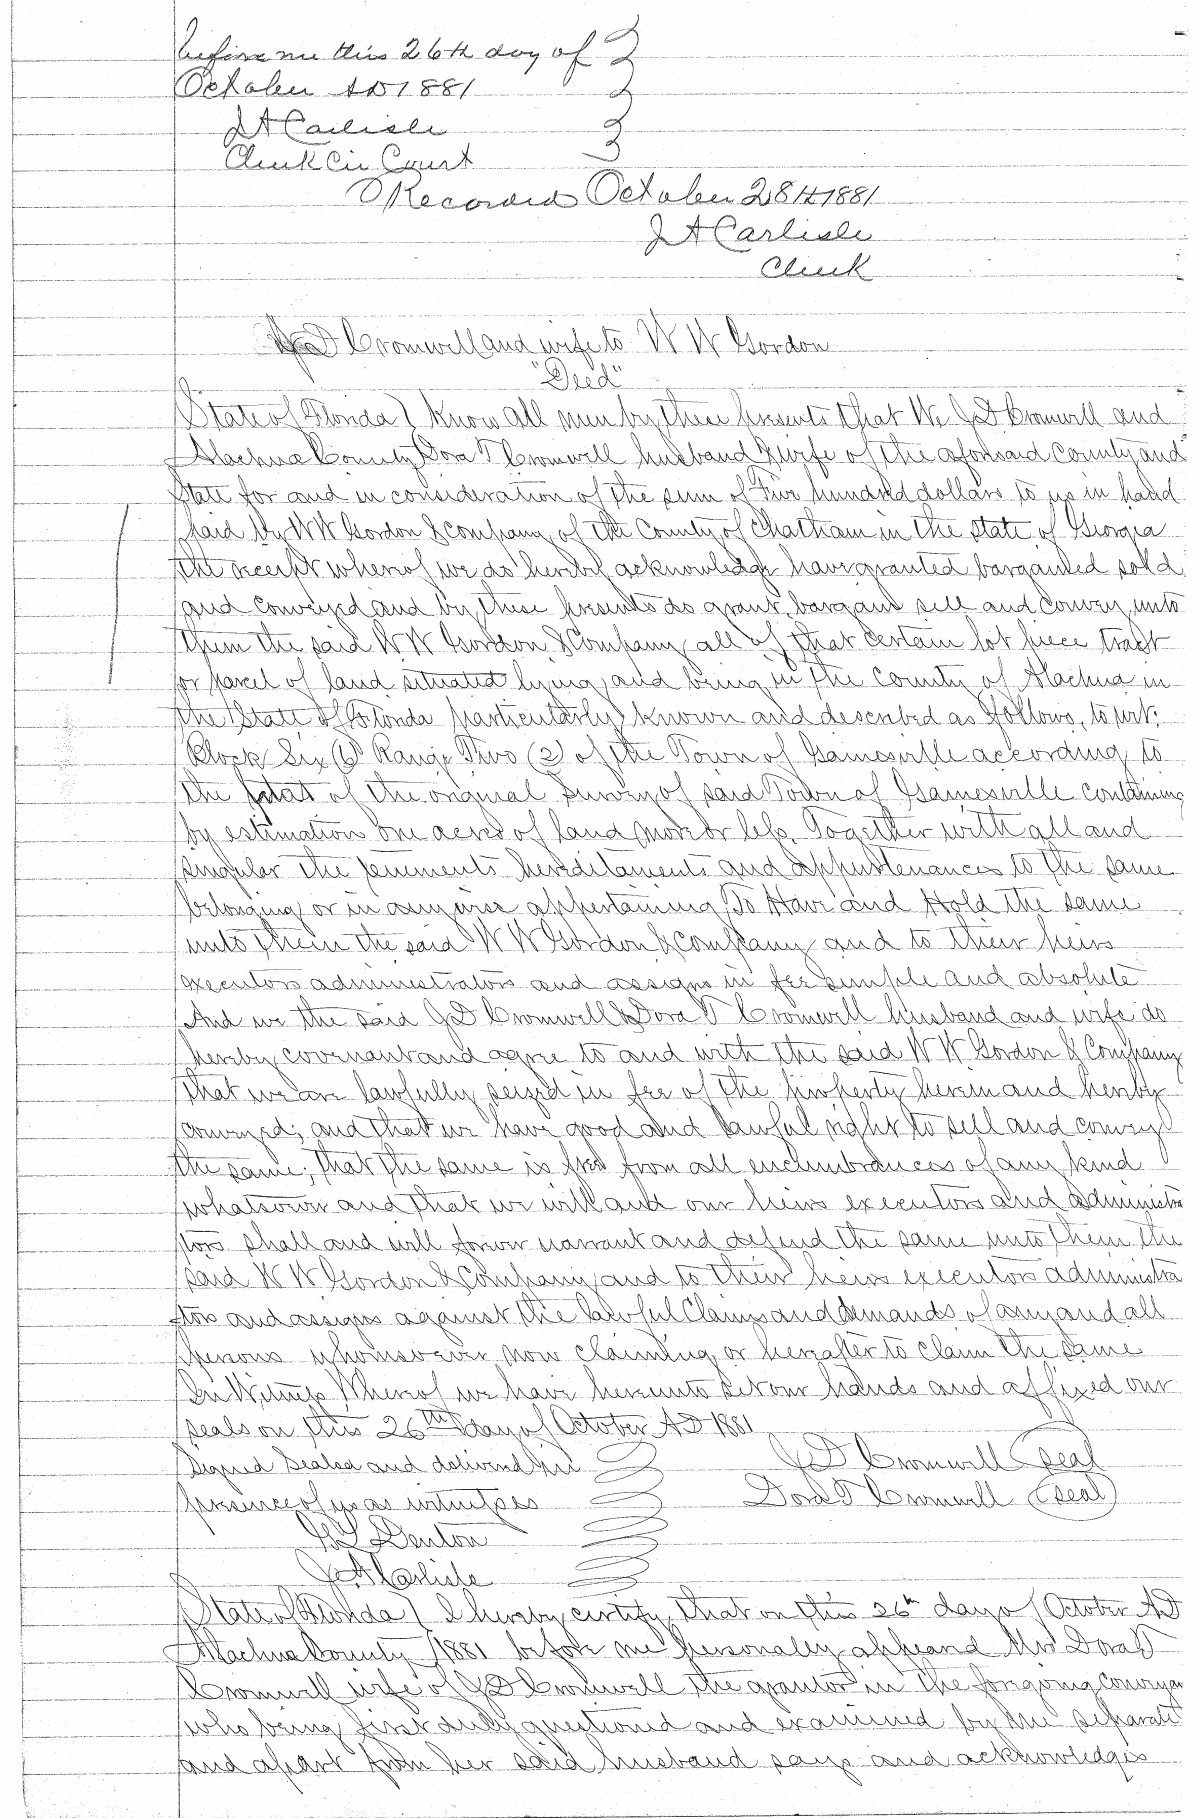 before me this 26th day of
October AD 1881
J A Carlisle
Clerk Cir Court
Recorded October 28th 1881
J A Carlisle
Clerk
J D Cromwell and wife to W W Gordon
"Deed"
State of Florida } Know all men by these presents that We J D Cromwell and
Alachua County } Dora T Cromwell husband & wife of the aforesaid County and
State for and in consideration of the sum of Five hundred dollars to us in hand
paid by W W Gordon & Company of the County of Chatham in the state of Georgia
the receipt whereof we do hereby acknowledge have granted bargained sold
and conveyed and by these presents do grant, bargain sell and convey unto
them the said W W Gordon & Company all of that certain lot piece tract
or parcel of land situated lying and being in the County of Alachua in
the State of Florida particularly known and described as follows, to wit:
Block Six (6) Range Two (2) of the Town of Gainesville according to
the plat of the original Survey of said Town of Gainesville containing
by estimation one acres of land more or less. Together with all and
singular the tenements hereditaments and appurtenances to the same
belonging or in anywise appertaining, To Have and Hold the same
unto them the said W W Gordon & Company and to their heirs
executors administrators and assigns in fee simple and absolute
And we the said J D Cromwell & Dora T Cromwell husband and wife do
hereby covenant and agree to and with the said W W Gordon & Company
that we are lawfully seized in fee of the property herein and hereby
conveyed; and that we have good and lawful right to sell and convey
the same; that the same is free from all encumbrances of any kind
whatsoever and that we will and our heirs executors and administra
tors shall and will forever warrant and defend the same unto them the
said W W Gordon & Company and to their heirs executors administra
tors and assigns against the lawful Claims and demands of any and all
persons whomsoever now claiming or hereafter to claim the same
In Witness Whereof we have hereunto set our hands and affixed our
seals on this 26th day of October AD 1881
Signed Sealed and delivered in J D Cromwell (seal)
presence of us as witnesses Dora T Cromwell (seal)
Denton
J A Carlisle
State of Florida } I hereby certify that on this 26th day of October AD
Alachua County } 1881 before me personally appeard Mrs Dora T
Cromwell wife of J D Cromwell the grantor in the foregoing conveyan
who being first duly questioned and examined by me separate
and apart from her said husband says and acknowledges